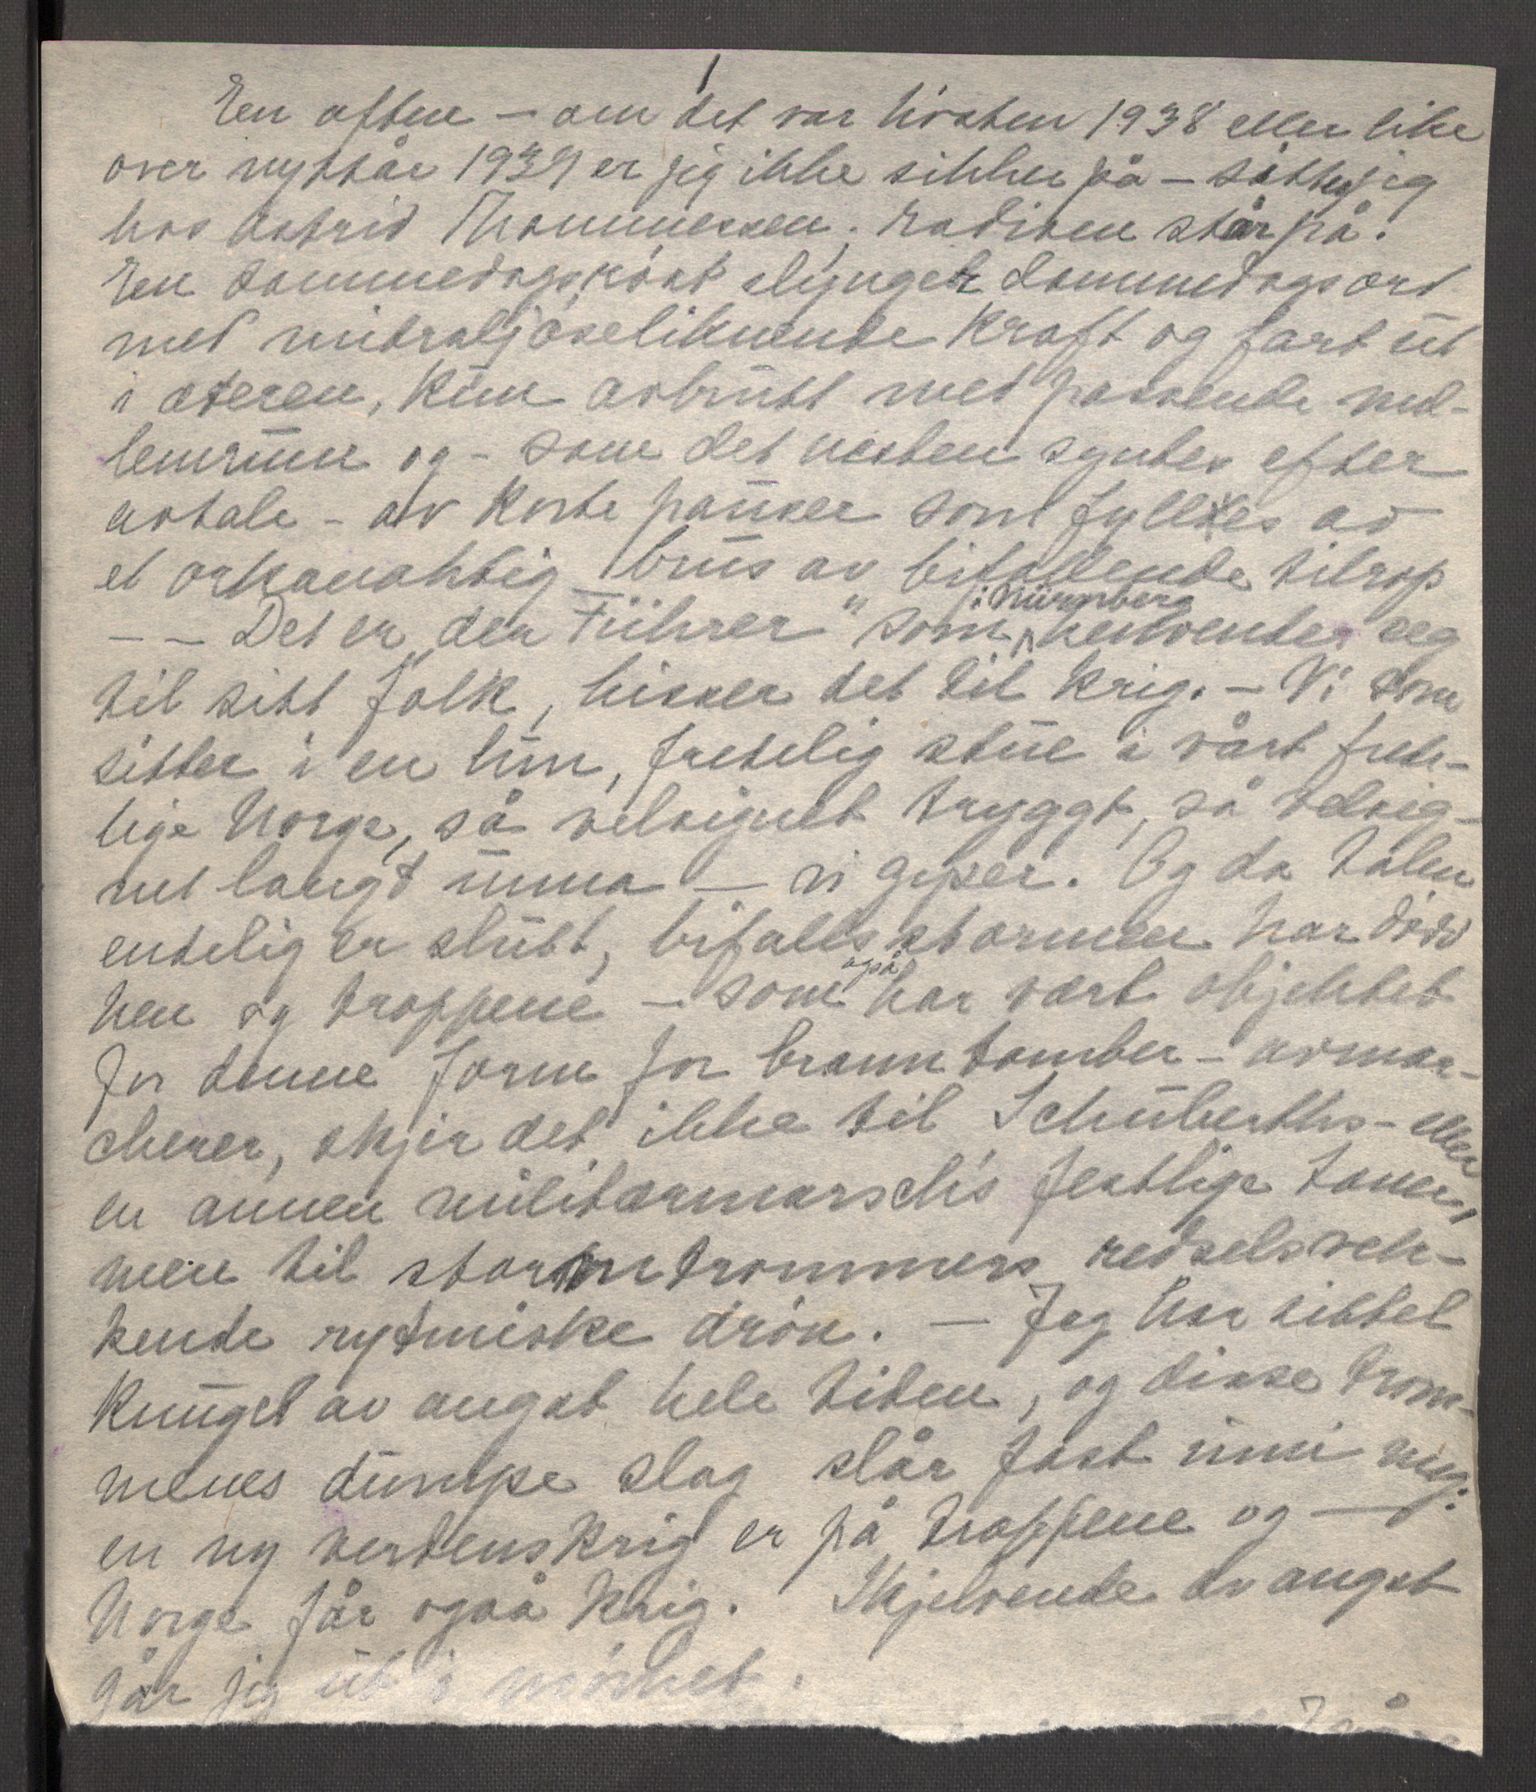 1
En aften – om det var høsten 1938 eller like
over nyttår 1939 er jeg ikke sikker på – sitter jeg
hos Astrid Thommessen. Radioen står på.
En dommedagsrøst slynger dommedagsord
med mitraljøseliknende kraft og fart ut
i æteren, kun avbrutt med passende mel-
lemrum og – som det nesten syntes efter
avtale – av korte pauser som fylles av
et orkanaktig brus av bifallende tilrop
– – Det er „der Führer" som i Nürnberg henvender seg
til sitt folk, hisser det til krig. – Vi som
sitter i en lun, fredelig stue i vårt frede-
lige Norge, så velsignet trygt, så velsig-
net langt unna – vi gyser. Og da talen
endelig er slutt, bifallsstormen har dødd
hen og troppene – som også har vært objektet
for denne form for brannbomber – avmar-
cherer, skjer det ikke til Schuberths – eller
en annen militærmarsch's festlige toner,
men til stormtrommers redselsvek-
kende rytmiske drøn. – Jeg har sittet
knuget av angst hele tiden, og disse trom-
menes dumpe slag slår fast inni meg:
en ny verdenskrig er på trappene og –
Norge får også krig. Skjelvende av angst
går jeg ut i mørket.